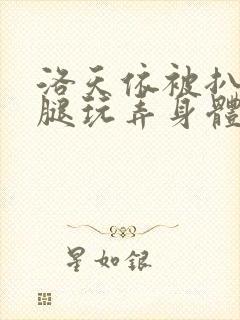 洛天依被扒
腿玩弄身體
星如銀